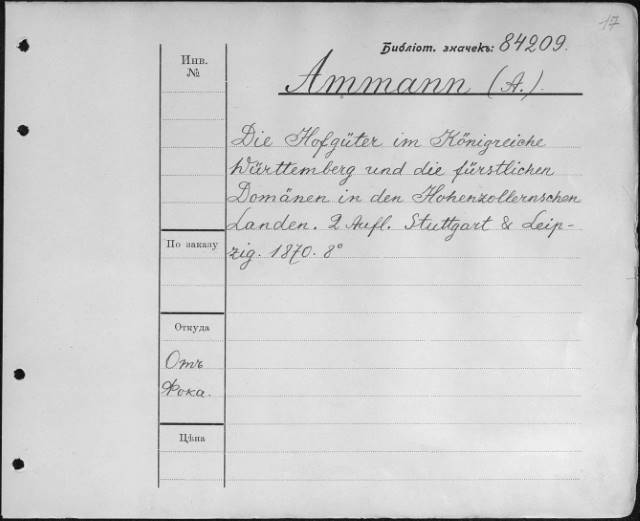 17
Библіот. значекъ: 84209.
Инв.
№
Ammann (A.).
Die Hofgüter im Königreiche
Württemberg und die fürstlichen
Domänen in den Hohenzollernschen
Landen. 2 Aufl. Stuttgart & Leip-
zig. 1870. 8°
По заказу
Откуда
Отъ
Фока.
Цѣна